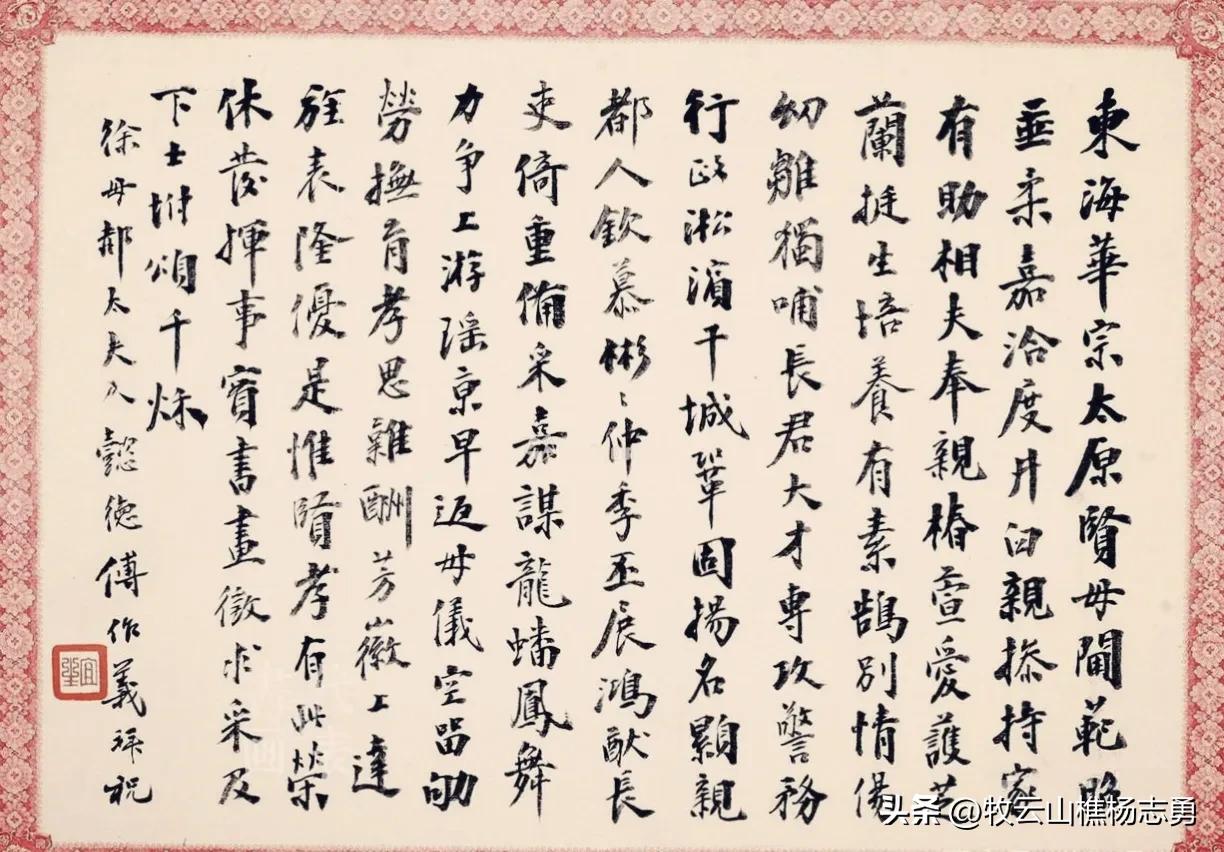 東海華宗太原賢母閫範昭
垂柔嘉洽度井臼親操持家
有助相夫奉親椿萱愛護芝
蘭挺生培養有素鵠別情傷
幼雛獨哺長君大才專攻警務
行政淞濱干城鞏固揚名顯親
都人欽慕彬彬仲季丕展鴻猷長
吏倚重備采嘉謨龍蟠鳳舞
力爭上游瑤京早返母儀空留劬
勞撫育孝思難酬芳徽上達
旌表隆優是惟賢孝有此榮
休發揮事實書畫徵求采及
下士坿頌千秋
徐母郝太夫人懿德傅作義拜祝
头条 @牧云山樵杨志勇